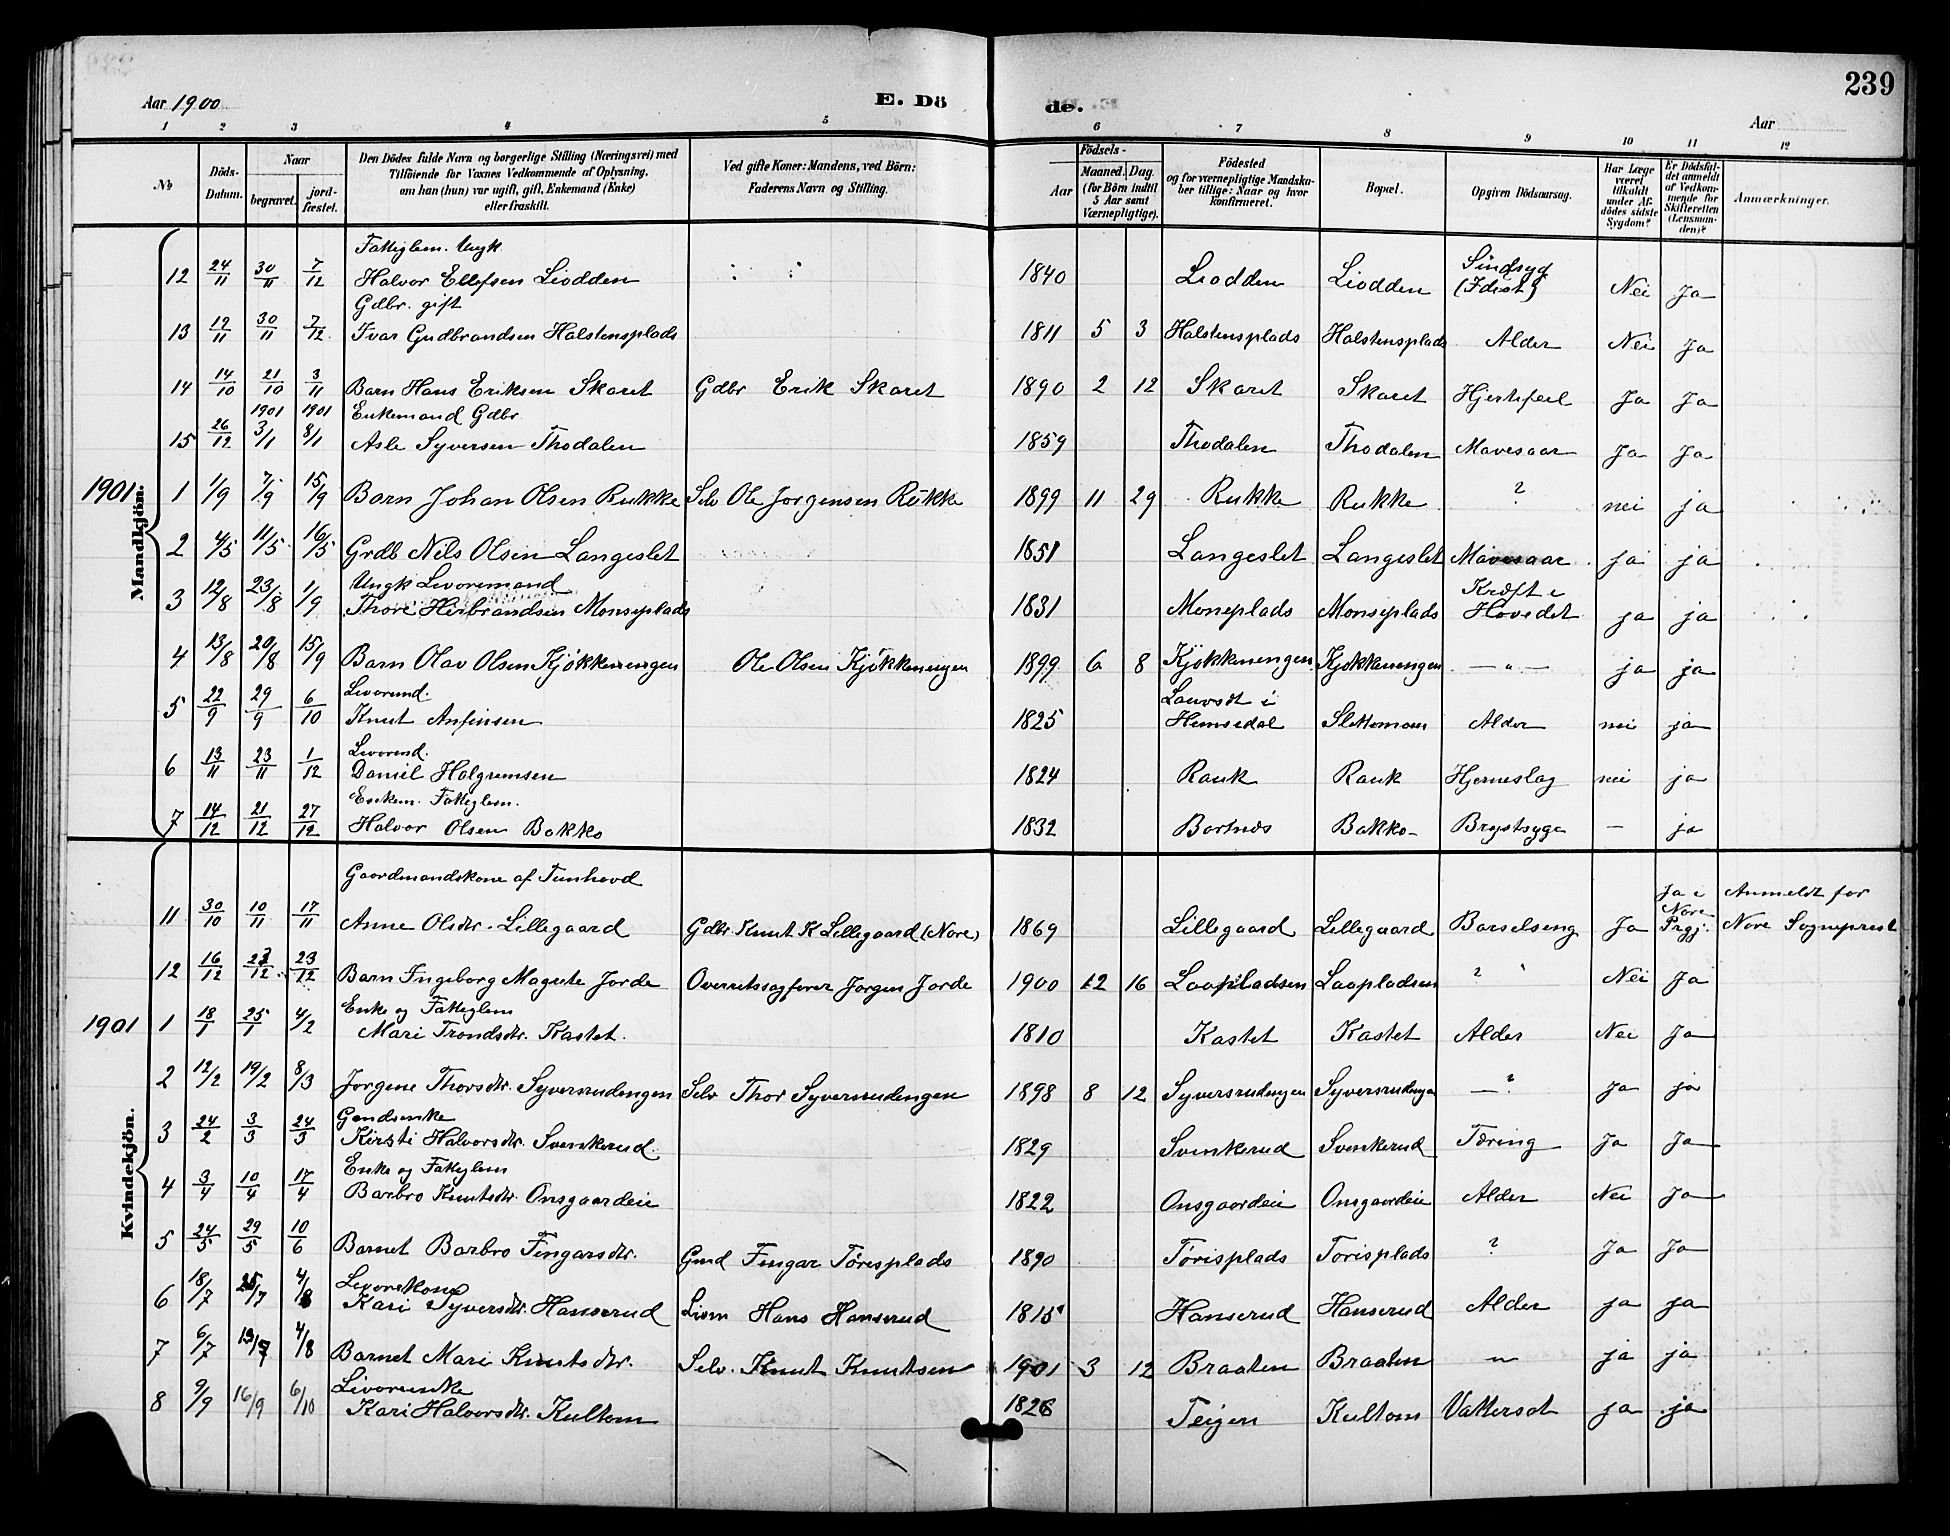 239
Aar 1900 E. Dö de. Aar
1 2 3 4 5 6 7 8 9 10 11 12
No Döds-Datum. Naar begravet. jord-fæstet. Den Dödes fulde Navn og borgerlige Stilling (Næringsvei) med Tilföiende for Voxnes Vedkommende af Oplysning, om han (hun) var ugift, gift, Enkemand (Enke) eller fraskilt. Ved gifte Koner: Mandens, ved Börn: Faderens Navn og Stilling. Födsels- Aar Maaned. Dag. (for Börn indtil 5 Aar samt Værnepligtige). Födested og for værnepligtige Mandskaber tillige: Naar og hvor konfirmeret. Bopæl. Opgiven Dödsaarsag. Har Læge været tilkaldt under Afdödes sidste Sygdom? Er Dödsfaldet anmeldt af Vedkommende for Skifteretten (Lensmanden)? Anmærkninger.
Mandkjön.
Fattiglem. Ungk
12 24/11 30/11 7/12 Halvor Ellefsen Liodden 1840 Liodden Liodden Sindsyg (Idiot) Nei Ja
Gdbr. gift
13 19/11 30/11 7/12 Ivar Gudbrandsen Halstensplads 1811 5 3 Halstensplads Halstensplads Alder Nei Ja
14 14/10 21/10 3/11 Barn Hans Eriksen Skaret Gdbr Erik Skaret 1890 2 12 Skaret Skaret Hjertefeil Ja Ja
1901 1901 Enkemand Gdbr
15 26/12 3/1 8/1 Asle Syversen Thodalen 1859 Thodalen Thodalen Mavesaar Ja Ja
1901 1 1/9 7/9 15/9 Barn Johan Olsen Rukke Selv Ole Jorgensen Rukke 1899 11 29 Rukke Rukke ? nei ja
2 4/5 11/5 16/5 Grdb Nils Olsen Langeslet 1851 Langeslet Langeslet Mavesaar ja ja
Ungk Levoremand
3 12/8 23/8 1/9 Thore Herbrandsen Monseplads 1831 Moneplads Monseplads Kræft i Hovedet ja ja
4 13/8 20/8 15/9 Barn Olav Olsen Kjøkkenengen Ole Olsen Kjøkkenengen 1899 6 8 Kjøkkenengen Kjøkkenengen — " — ja ja
Levorend.
5 22/9 29/9 6/10 Knut Anfinsen 1825 Hemsedal Alder nei ja
Levorend.
6 13/11 23/11 1/12 Daniel Halgrimsen 1824 Rauk Rauk Hjerneslag nei ja
Enkem. Fattiglem.
7 14/12 21/12 27/12 Halvor Olsen Bakko 1832 Bortnes Bakko Brystsyge — ja
Kvindekjön.
Gaardmandskone af Tunhovd
11 30/10 10/11 17/11 Anne Olsdtr. Lillegaard Gdbr. Knut K Lillegaard (Nore) 1869 Lillegaard Lillegaard Barselseng Ja Ja i Nore Prgj. Anmeldt for Nore Sogneprest
12 16/12 23/12 23/12 Barn Ingeborg Magrete Jorde Overretssagfører Jørgen Jorde 1900 12 16 Laapladsen Laapladsen ? Nei Ja
Enke og Fattiglem
1901 1 18/1 25/1 4/2 Mari Trondsdtr. Kastet. 1810 Kastet Kastet Alder Nei Ja
2 12/2 19/2 8/3 Jorgene Thorsdtr. Syversrudengen Selv Thor Syversrudengen 1898 8 12 Syversrudengen Syversrudengen — ? Ja ja
3 24/2 3/3 24/3 Kirsti Halvorsdtr. Svenkerud. 1829 Svenkerud Svenkerud Tæring Ja Ja
Enke og Fattiglem
4 3/4 10/4 17/4 Barbro Knutsdtr. Onsgaardeie 1822 Onsgaardeie Onsgaardeie Alder Nei Ja
5 24/5 29/5 10/6 Barnet Barbro Fingarsdtr. Gmd Fingar Tørisplads 1890 Tørisplads Torisplads ? Ja Ja
Levorekone
6 18/7 25/7 4/8 Kari Syversdtr. Hanserud Hans Hanserud 1815 Hanserud Hanserud Alder ja ja
7 6/7 13/7 4/8 Barnet Mari Knutsdtr. Selv. Knut Knutsen 1901 3 12 Braaten Braaten — " ja ja
Levorenke
8 9/9 16/9 6/10 Kari Halvorsdtr. Kultom 1826 Teigen Kultom Vattersot ja ja